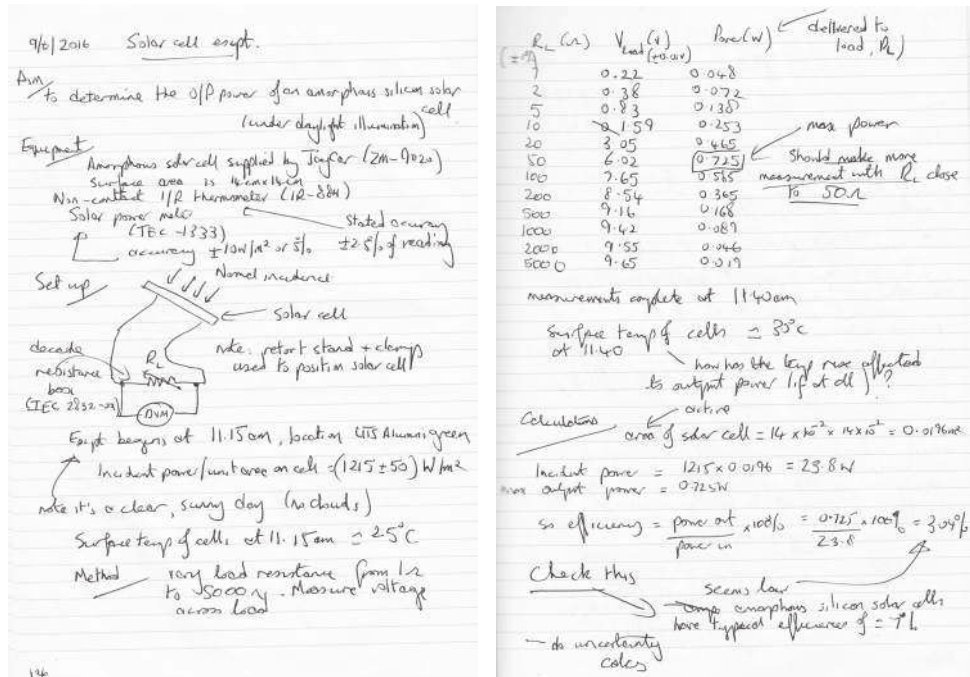 9/6/2016 Solar cell exept.
Aim
to determine the O/P power of an amorphous silicon solar
cell
(under daylight illumination)
Equipment
Amorphous solar cell supplied by Jaycar (ZM-9020)
surface area is 14cm x 14cm
Non-contact I/R thermometer (IR-884)
Solar power meter
(TEC-1333)
accuracy ±10W/m² or 5%
Stated accuracy
±2.5% of reading
Set up
Normal incidence
Solar cell
decade
resistance
box
(TEC 2832-09)
R_L
DVM
note: retort stand + clamps
used to position solar cell
Exept begins at 11.15am, location UTS Alumni green
Incident power/unit area on cell = (1215 ± 50) W/m²
note it's a clear, sunny day (no clouds)
Surface temp of cells at 11.15am ≃ 25°C
Method
vary load resistance from 1Ω
to 5000Ω. Measure voltage
across load
R_L (Ω) V_load (V) Power (W) delivered to
(±0.01V) load, R_L)
1 0.22 0.048
2 0.38 0.072
5 0.83 0.138
10 1.59 0.253
20 3.05 0.465
50 6.02 0.725
100 7.65 0.585
200 8.54 0.365
500 9.16 0.168
1000 9.42 0.089
2000 9.55 0.046
5000 9.65 0.019
max power
Should make more
measurement with R_L close
to 50Ω
measurements complete at 11.40am
Surface temp of cells ≃ 33°C
at 11.40
how has the temp rise affected
to output power (if at all)?
Calculations
active
area of solar cell = 14 x 10⁻² x 14 x 10⁻² = 0.0196m²
Incident power = 1215 x 0.0196 = 23.8W
max output power = 0.725W
So efficiency = power out / power in x 100% = 0.725 / 23.8 x 100% = 3.04%
Check this
seems low
amorphous silicon solar cells
have typical efficiencies of ≃ 7%
- do uncertainty
calcs